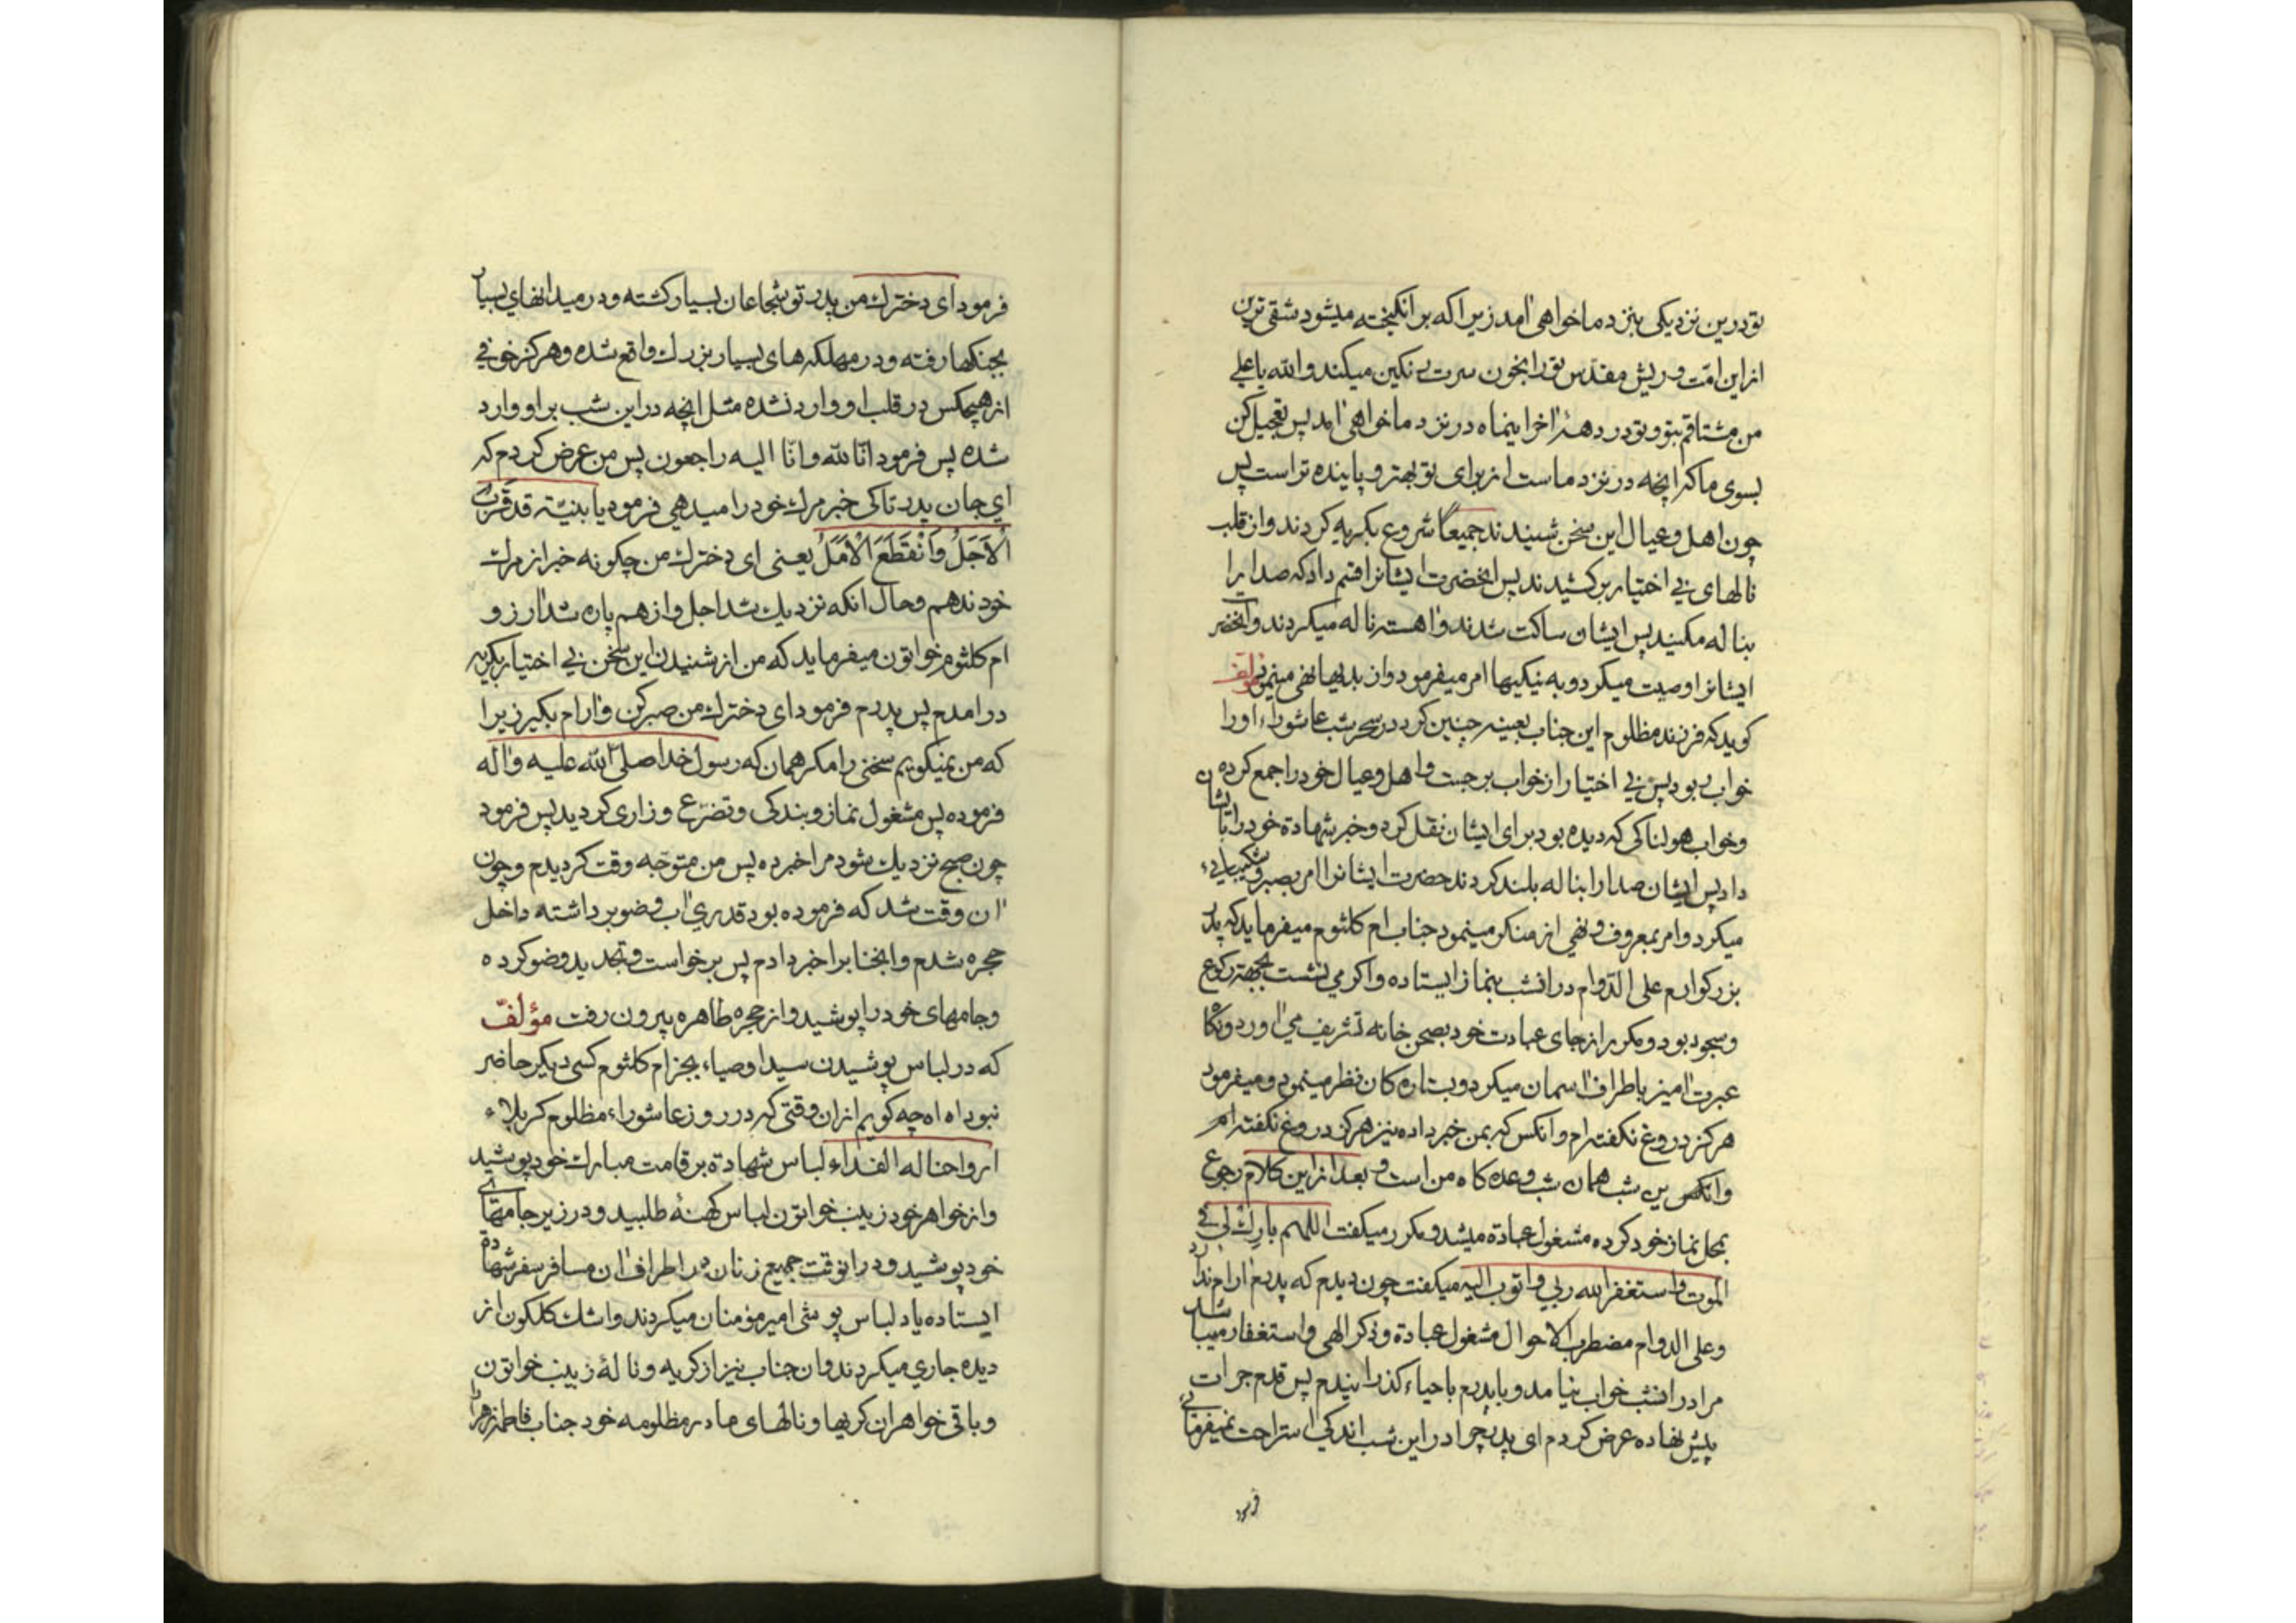 تو درین نزدیکی بنزد ما خواهی آمد زیرا که بر انکیخته میشود شقی ترین
از این امّت و ریش مقدّس تو را بخون سرت رنکین میکند والله یا علی
من مشتاقم بتو و تو در دههٔ آخر اینماه در نزد ما خواهی آمد پس تعجیل کن
بسوی ما که آنچه در نزد ماست از برای تو بهتر و پاینده تر است پس
چون اهل و عیال این سخن شنیدند جمیعًا شروع بکریه کردند و از قلب
نالهای بی اختیار بر کشیدند پس آنحضرت ایشانرا قسم داد که صدا را
بناله مکنید پس ایشان ساکت شدند و آهسته ناله میکردند و آنحضر
ایشانرا وصیت میکرد و به نیکیها امر میفرمود و از بدیها نهی مینمود مؤلف
کوید که فرزند مظلوم این جناب بعینه چنین کرد در سحر شب عاشوراء او را
خواب ربود پس بی اختیار از خواب برجست و اهل و عیال خود را جمع کرده
و خواب هولناکی که دیده بود برای ایشان نقل کرد و خبر شهادة خود را بایشان
داد پس ایشان صدا را بناله بلند کردند حضرت ایشانرا امر بصبر و شکیبایی
میکرد و امر بمعروف و نهی از منکر مینمود جناب ام کلثوم میفرماید که پدر
بزرکوارم علی الدّوام در آنشب بنماز ایستاده و اکر می نشست بجهة رکوع
و سجود بود و مکرر از جای عبادت خود بصحن خانه تشریف می آورد و نکاه
عبرت آمیز باطراف آسمان میکرد و بستاره کان نظر مینمود و میفرمود
هرکز دروغ نکفته ام و آنکس که بمن خبر داده نیز هرکز دروغ نکفته ام
و شب همان شب وعده کاه من است و بعد از این کلام رجوع
بمحل نماز خود کرده مشغول عبادة میشد و مکرر میکفت اللهم بارك لی فی
الموت و استغفر الله ربی و اتوب الیه میکفت چون دیدم که پدرم آرام ندارد
و علی الدوام مضطرب الاحوال مشغول عبادة و ذکر الهی و استغفار میباشد
مرا در آنشب خواب نیامد و با پدرم باحیاء کذرانیدم پس قدم جرات
پیش نهاده عرض کردم ای پدر چرا در این شب اندکی استراحت نمیفرمائی
فرمود
فرمود ای دخترك من پدر تو شجاعان بسیار کشته و در میدانهای بسیار
بجنکها رفته و در مهلکه های بسیار بزرك واقع شده و هرکز خوفی
از هیچکس در قلب او وارد نشده مثل آنچه در این شب بر او وارد
شده پس فرمود انّا لله و انّا الیه راجعون پس من عرض کردم که
ای جان پدر تا کی خبر مرك خود را میدهی فرمود یا بنیّة قد قَرُبَ
الْاَجَلُ وَانْقَطَعَ الْاَمَلُ یعنی ای دخترك من چکونه خبر از مرك
خود ندهم و حال آنکه نزدیك شد اجل و از هم پاره شد آرزو
ام کلثوم خواتون میفرماید که من از شنیدن این سخن بی اختیار بکریه
در آمدم پس پدرم فرمود ای دخترك من صبر کن و آرام بکیر زیرا
که من نمیکویم سخنی را مکر همان که رسول خدا صلی الله علیه و آله
فرموده پس مشغول نماز و بندکی و تضرّع و زاری کردید پس فرمود
چون صبح نزدیك شود مرا خبر ده پس من متوجّه وقت کردیدم و چون
آن وقت شد که فرموده بود قدری آب وضو برداشته داخل
حجره شدم و آنجنابرا خبر دادم پس برخواست و تجدید وضو کرده
و جامهای خود را پوشید و از حجره طاهره بیرون رفت مؤلف
که در لباس پوشیدن سید اوصیاء بجز ام کلثوم کسی دیکر حاضر
نبود اه اه چه کویم از ان وقتی که در روز عاشوراء مظلوم کربلاء
ارواحنا له الفداء لباس شهادة بر قامت مبارك خود پوشید
و از خواهر خود زینب خواتون لباس کهنهٔ طلبید و در زیر جامهای
خود پوشید و در آنوقت جمیع زنان در اطراف آن مسافر سفر شهادة
ایستاده یاد لباس پوشی امیر مؤمنان میکردند و اشك کلکون از
دیده جاری میکردند و ان جناب نیز از کریه و نالهٔ زینب خواتون
و باقی خواهران کریها و نالهای مادر مظلومه خود جناب فاطمه زهرا